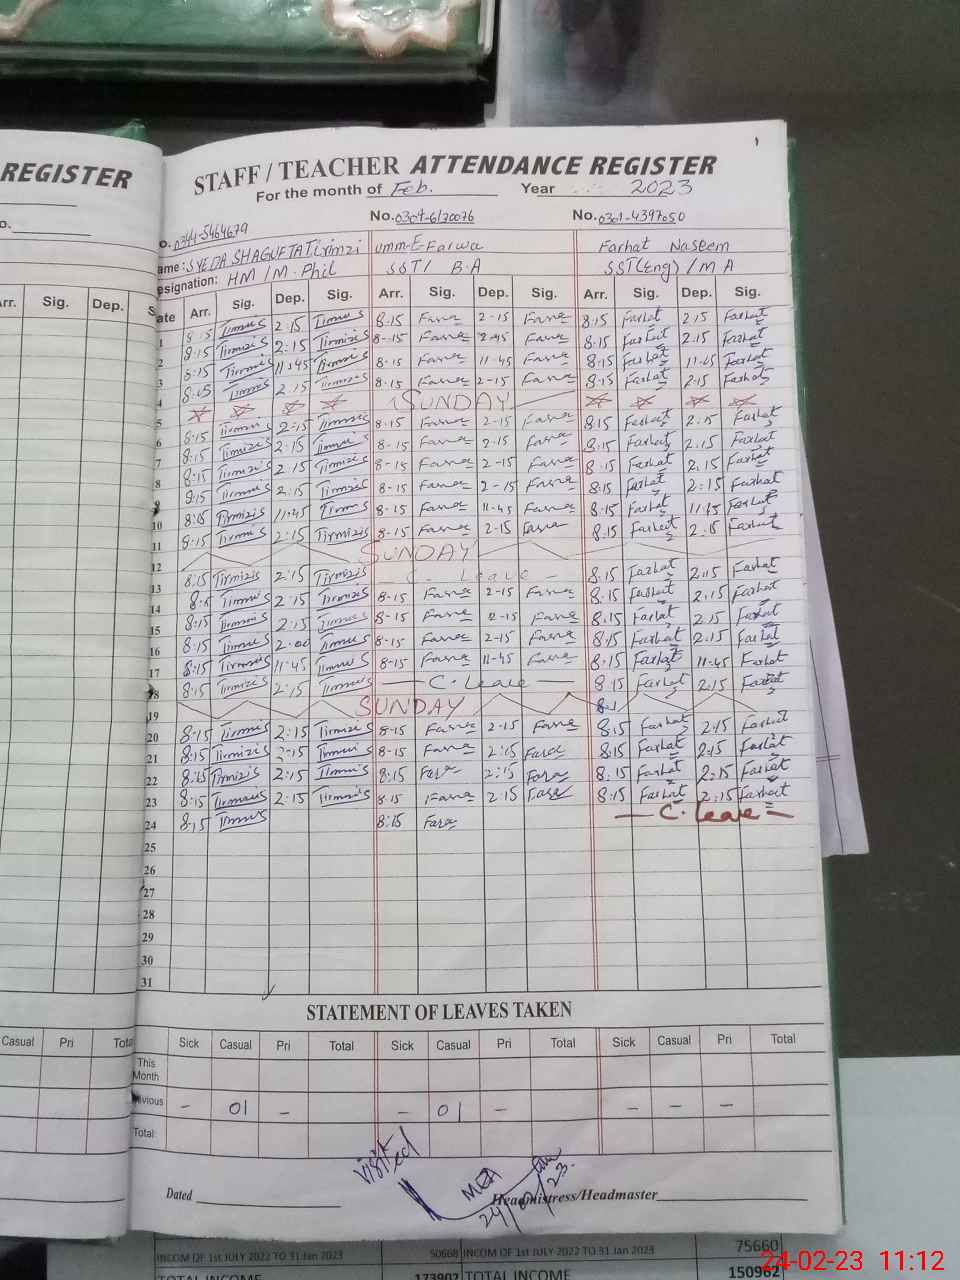 REGISTER
STAFF/TEACHER ATTENDANCE REGISTER
For the month of Feb. Year 2023
o. 0344-5464679 No. 0307-6170076 No. 0301-4397050
ame: SYEDA SHAGUFTA Tirimzi Umm-E-Farwa Farhat Naseem
esignation: HM / M. Phil SST/ B.A SST(Eng) / M A
rr. Sig. Dep. S ate Arr. Sig. Dep. Sig. Arr. Sig. Dep. Sig. Arr. Sig. Dep. Sig.
1 8:15 Tirmizis 2:15 Tirmizis 8.15 Farwa 2-15 Farwa 8:15 Farhat 2.15 Farhat
2 8:15 Tirmizis 2:15 Tirmizis 8-15 Farwa 2-45 Farwa 8:15 Farhat 2.15 Farhat
3 8:15 Tirmizis 11:45 Tirmizis 8.15 Farwa 11-45 Farwa 8:15 Farhat 11:45 Farhat
4 8:15 Tirmizis 2:15 Tirmizis 8.15 Farwa 2-15 Farwa 8:15 Farhat 2:15 Farhat
5 SUNDAY
6 8:15 Tirmizis 2:15 Tirmizis 8-15 Farwa 2-15 Farwa 8:15 Farhat 2:15 Farhat
7 8:15 Tirmizis 2:15 Tirmizis 8-15 Farwa 2-15 Farwa 8:15 Farhat 2:15 Farhat
8 8:15 Tirmizis 2:15 Tirmizis 8-15 Farwa 2-15 Farwa 8:15 Farhat 2:15 Farhat
9 8:15 Tirmizis 2:15 Tirmizis 8-15 Farwa 2-15 Farwa 8:15 Farhat 2:15 Farhat
10 8:15 Tirmizis 11:45 Tirmizis 8-15 Farwa 11-45 Farwa 8:15 Farhat 11:45 Farhat
11 8:15 Tirmizis 2:15 Tirmizis 8-15 Farwa 2-15 Farwa 8:15 Farhat 2:15 Farhat
12 SUNDAY
13 8:15 Tirmizis 2:15 Tirmizis - C. Leave - 8:15 Farhat 2:15 Farhat
14 8:15 Tirmizis 2:15 Tirmizis 8-15 Farwa 2-15 Farwa 8:15 Farhat 2:15 Farhat
15 8:15 Tirmizis 2:15 Tirmizis 8-15 Farwa 2-15 Farwa 8:15 Farhat 2:15 Farhat
16 8:15 Tirmizis 2:00 Tirmizis 8-15 Farwa 2-15 Farwa 8:15 Farhat 2:15 Farhat
17 8:15 Tirmizis 11:45 Tirmizis 8-15 Farwa 11-45 Farwa 8:15 Farhat 11:45 Farhat
18 8:15 Tirmizis 2:15 Tirmizis - C. Leave - 8:15 Farhat 2:15 Farhat
19 SUNDAY
20 8:15 Tirmizis 2:15 Tirmizis 8-15 Farwa 2-15 Farwa 8:15 Farhat 2:15 Farhat
21 8:15 Tirmizis 2:15 Tirmizis 8-15 Farwa 2:15 Farwa 8:15 Farhat 2:15 Farhat
22 8:15 Tirmizis 2:15 Tirmizis 8:15 Farwa 2:15 Farwa 8:15 Farhat 2:15 Farhat
23 8:15 Tirmizis 2:15 Tirmizis 8:15 Farwa 2:15 Farwa 8:15 Farhat 2:15 Farhat
24 8:15 Tirmizis 8:15 Farwa - C. Leave -
25
26
27
28
29
30
31
STATEMENT OF LEAVES TAKEN
Casual Pri Tota Sick Casual Pri Total Sick Casual Pri Total Sick Casual Pri Total
This Month
vious - 01 - - 01 - - - -
Total:
Visited
MEA
24/02/23.
Dated Headmistress/Headmaster
INCOM OF 1st JULY 2022 TO 31 Jan 2023 50668 INCOM OF 1st JULY 2022 TO 31 Jan 2023 75660
TOTAL INCOME 173902 TOTAL INCOME 150962
24-02-23 11:12